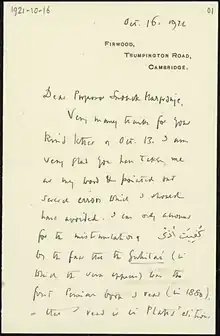 1921-10-16
01
Oct. 16. 1921
FIRWOOD,
TRUMPINGTON ROAD,
CAMBRIDGE.
Dear Professor Snouck Hurgronje,
Very many thanks for your
kind letter of Oct. 13. I am
very glad you have taken me
at my word & pointed out
several errors which I should
have avoided. I can only account
for the mistranslation of
by the fact that the Gulistan (in
which the verse appears) was the
first Persian book I read (in 1889).
& that I read it in Platts' edition